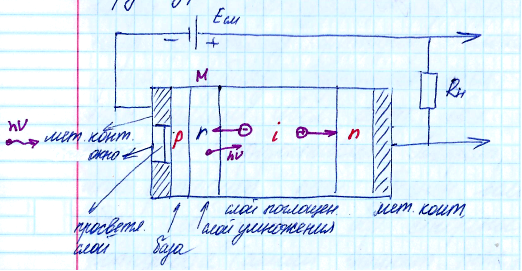 Eсм
− +
M
Rн
hν
мет. конт.
окно
p n ⊖ i ⊕ n
hν
просветл.
слой
база
слой поглощен.
слой умножения
мет. конт